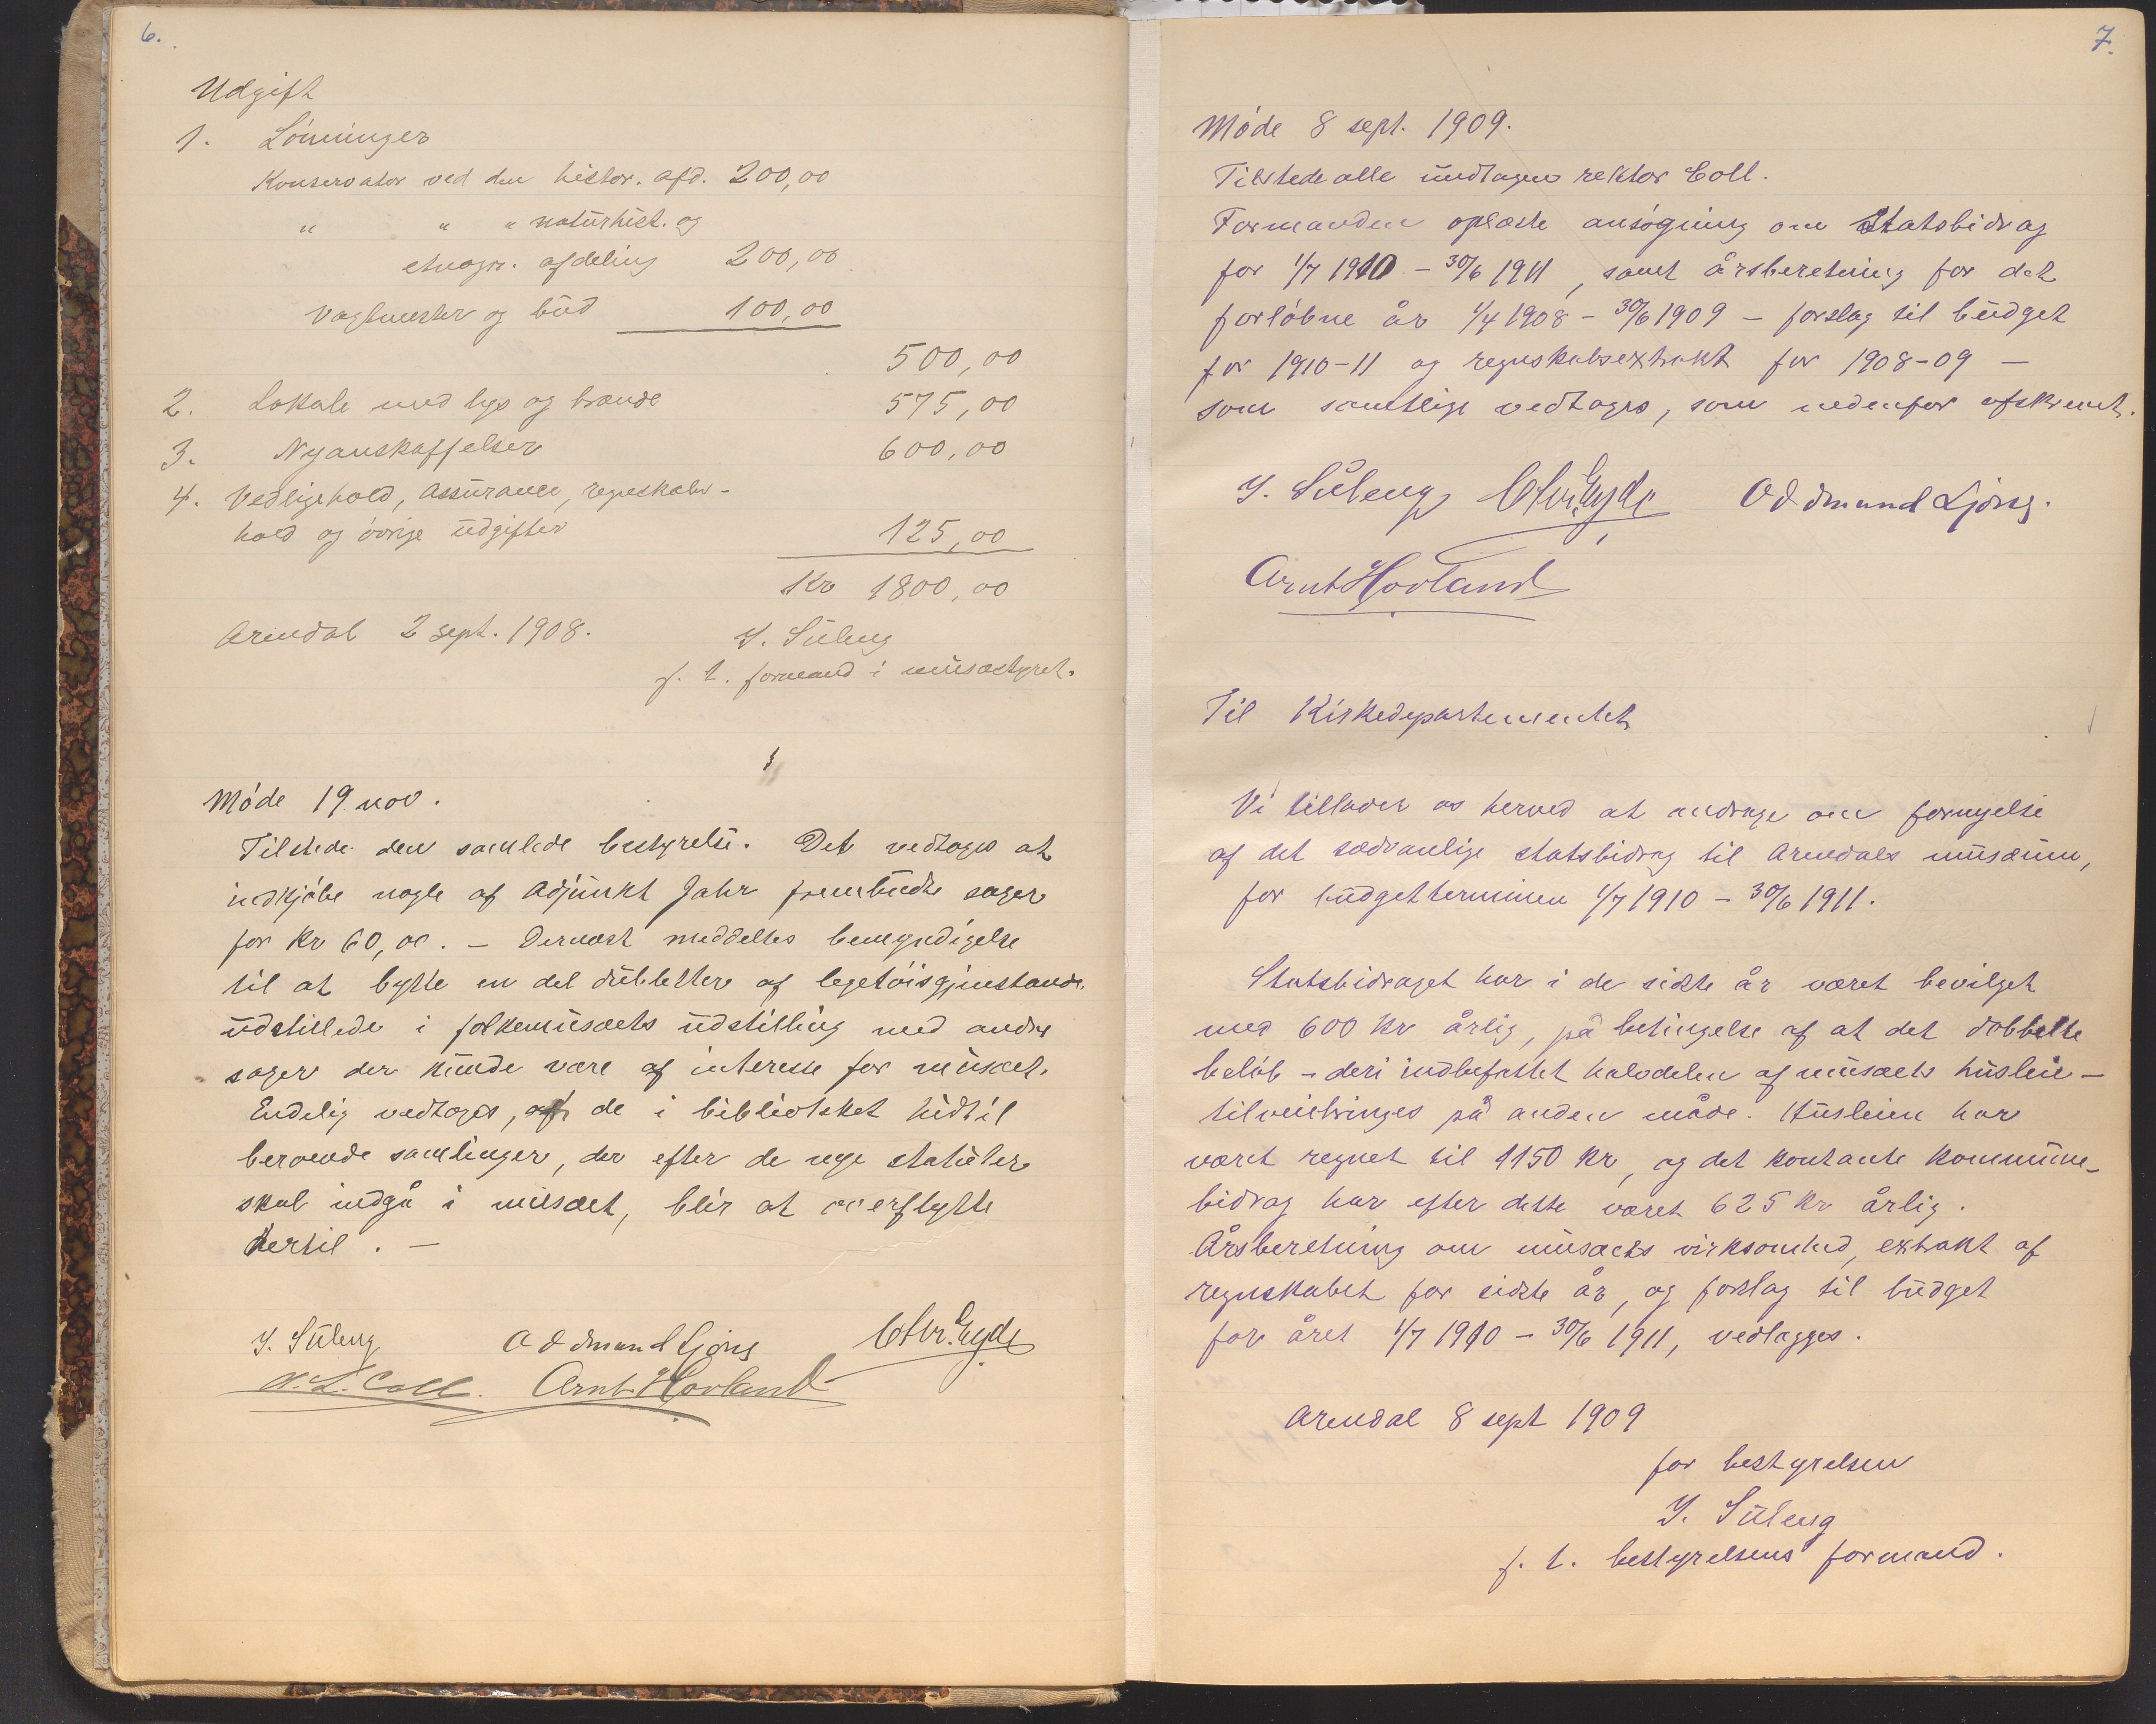 6.
Udgift
1. Lönninger
Konservator ved den histor. afd. 200,00
" " " naturhist. og
etnogr. afdeling 200,00
Vagtmester og bud 100,00
500,00
2. Lokale med lys og brænde 575,00
3. Nyanskaffelser 600,00
4. Vedligehold, assurance, regnskabs-
hold og övrige udgifter 125,00
Kr 1800,00
Arendal 2 sept. 1908.
J. Suleng
f. t. formand i musæstyret.
Möde 19 nov.
Tilstede den samlede bestyrelse. Det vedtoges at
indkjöbe nogle af Adjunkt Jahr frembudte sager
for Kr 60,00. – Dernæst meddeltes bemyndigelse
til at bytte en del dubletter af legetöisgjenstande
udstillede i folkemusæets udstilling med andre
sager der kunde være af interesse for musæet.
Endelig vedtoges, at de i bibliotsket hidtil
beroende samlinger, der efter de nye statuter
skal indgå i musæet, blir at overflytte
hertil. –
J. Suleng Oddmund Ljöng Chr. Eyde
N. L. Coll. Arnt Hovland
7.
Möde 8 sept. 1909.
Tilstede alle undtagen rektor Coll.
Formanden oplæste ansögning om Statsbidrag
for 1/7 1910 – 30/6 1911, samt årsberetning for det
forlöbne år 1/4 1908 – 30/6 1909 – forslag til budget
for 1910-11 og regnskabsextrakt for 1908-09 –
som samtlige vedtoges, som nedenfor afskrevet.
J. Suleng Chr. Eyde Oddmund Ljöng.
Arnt Hovland
Til Kirkedepartementet
Vi tillader os herved at andrage om fornyelse
af det sædvanlige statsbidrag til Arendals musæum,
for budgetterminen 1/7 1910 – 30/6 1911.
Statsbidraget har i de sidste år været bevilget
med 600 Kr årlig, på betingelse af at det dobbelte
belöb – deri indbefattet halvdelen af musæets husleie –
tilveiebringes på anden måde. Husleien har
været regnet til 1150 Kr, og det kontante kommune-
bidrag har efter dette været 625 Kr årlig.
Årsberetning om musæets virksomhed, extrakt af
regnskabet for sidste år, og forslag til budget
for året 1/7 1910 – 30/6 1911, vedlægges.
Arendal 8 sept 1909
for bestyrelsen
J. Suleng
f. t. bestyrelsens formand.